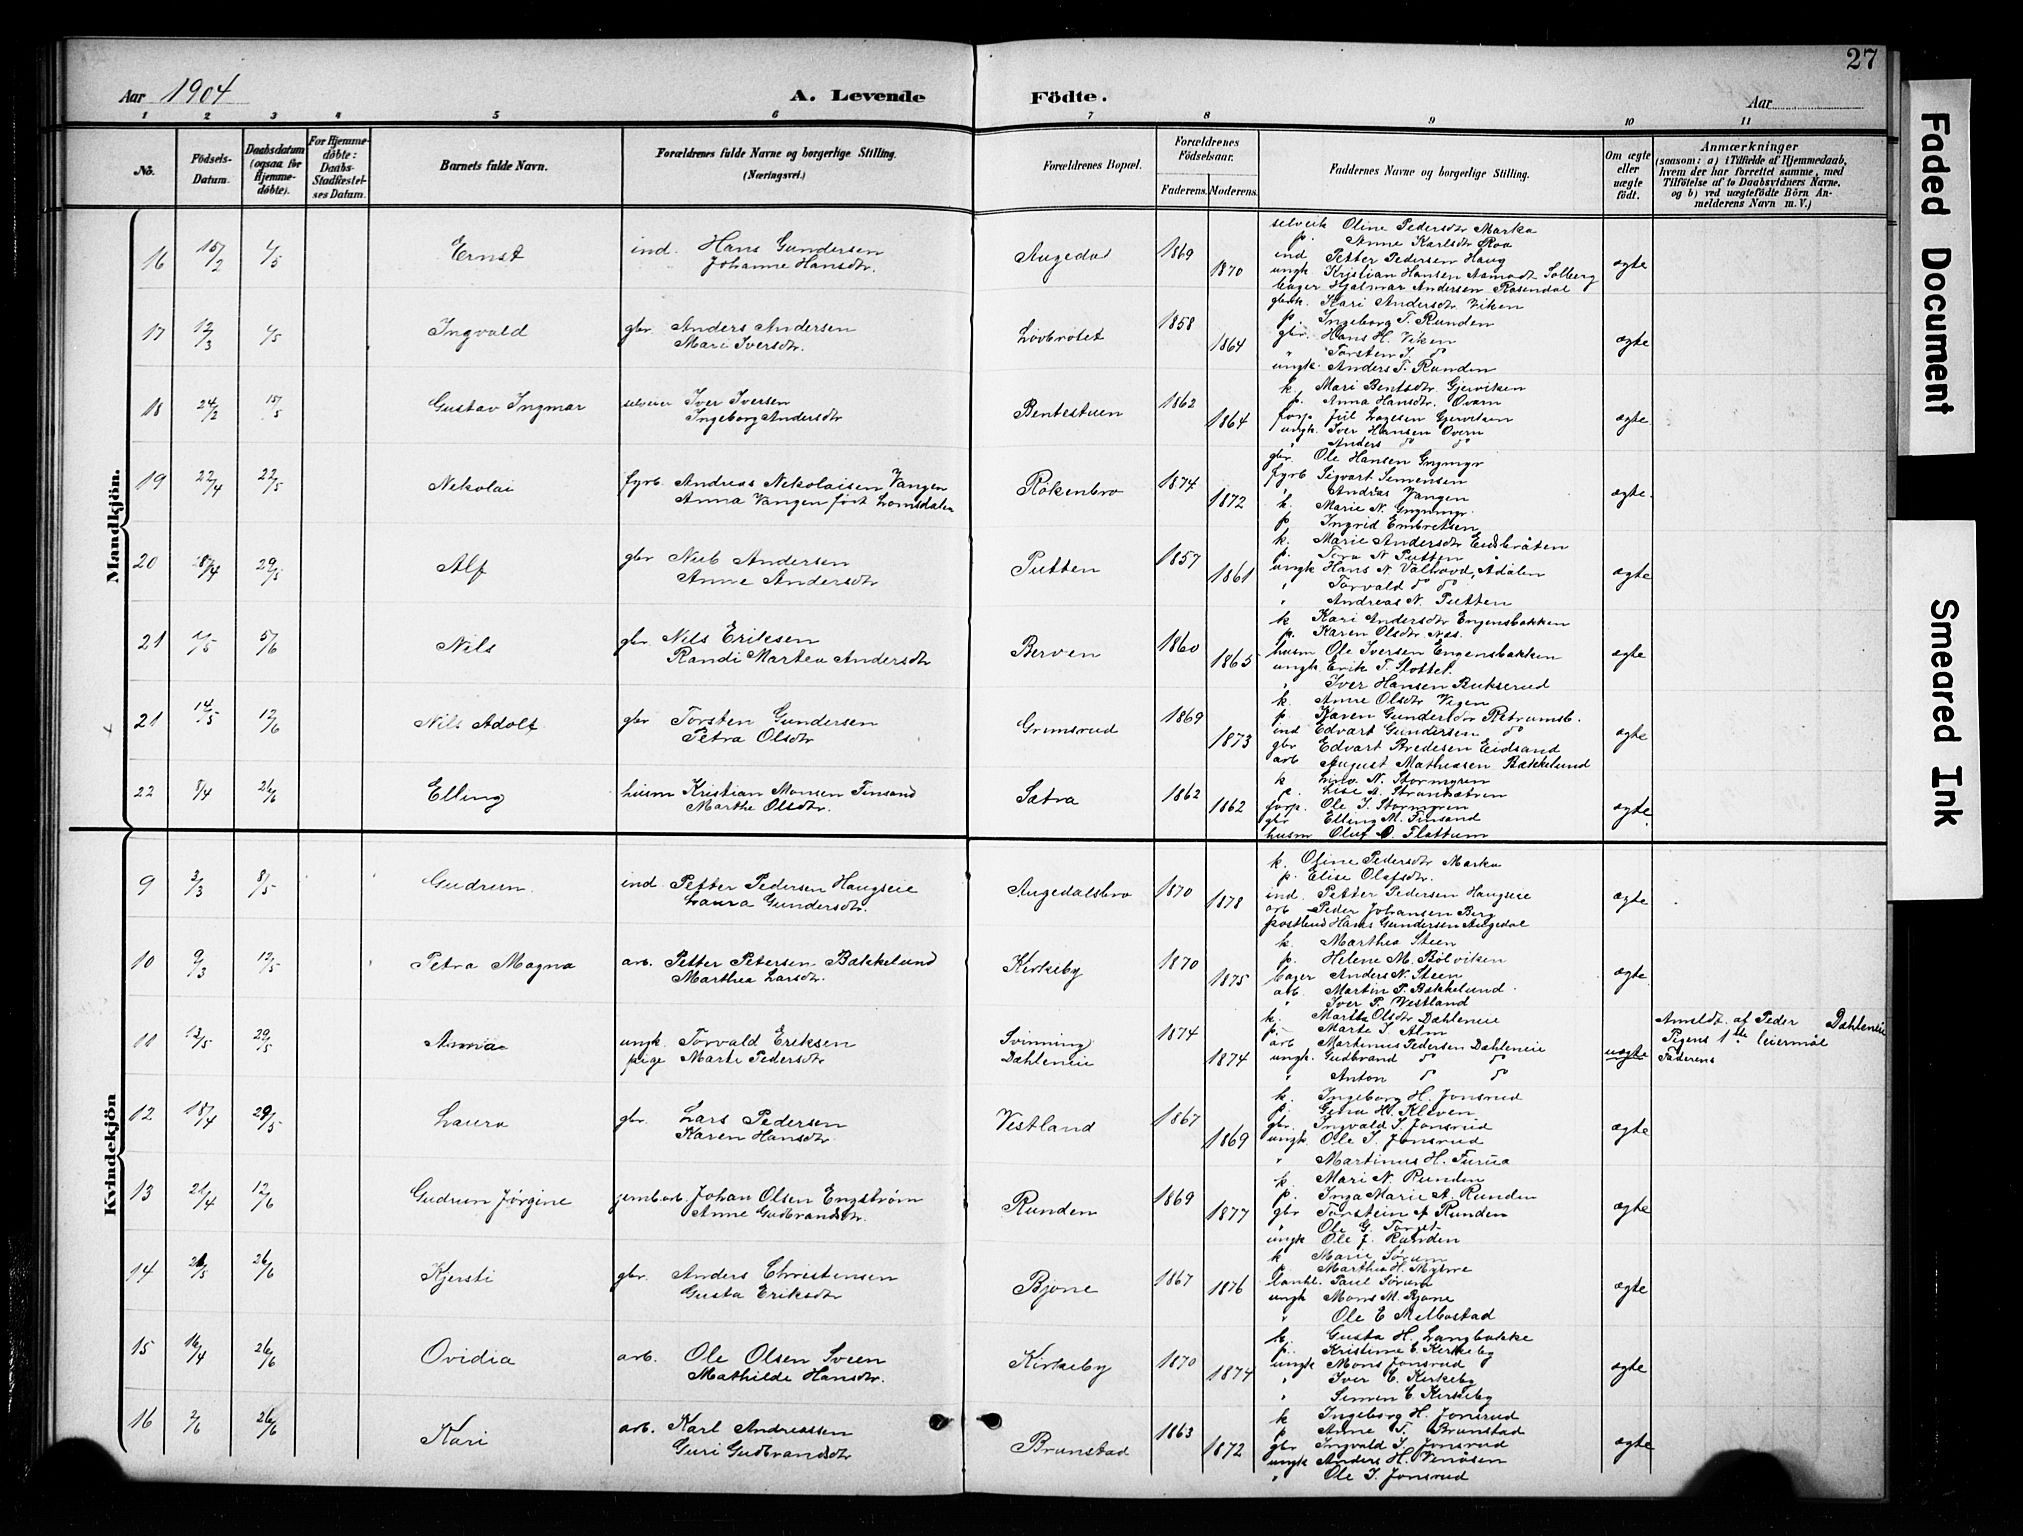 27
Aar 1904
A. Levende
Födte.
Aar
1 2 3 4 5 6 7 8 9 10 11
No.
Födsels-Datum.
Daabsdatum (ogsaa for Hjemmedøbte).
For Hjemmedøbte: Daabs-Stadfæstelses Datum.
Barnets fulde Navn.
Forældrenes fulde Navne og borgerlige Stilling. (Næringsvei.)
Forældrenes Bopæl.
Forældrenes Födselsaar.
Faderens. Moderens.
Faddernes Navne og borgerlige Stilling.
Om ægte eller uægte født.
Anmærkninger
(saasom: a) i Tilfælde af Hjemmedaab,
hvem der har forrettet samme, med
Tilföielse af to Daabsvidners Navne.
og b) ved uægtefödte Börn An-
melderens Navn m. V.)
Mandkjön.
16 15/2 1/5 Ernst ind. Hans Gundersen
Johanne Hansdtr. Augedal 1869 1870 ægte
selveik Oline Pedersdtr Marka
p. Anne Karlsdtr Roa
ind Petter Pedersen Haug
ungk Kristian Hansen Aamodt Solberg
bager Hjalmar Andersen Rosendal
17 12/3 1/5 Ingvald gbr Anders Andersen
Mari Iversdtr. Lövbrötet 1858 1864 ægte
gbrk. Kari Andersdtr Viken
p. Ingeborg T. Runden
gbr. Hans H. Viken
" Torsten I. do
ungk. Anders T. Runden
18 24/2 15/5 Gustav Ingmar selveier Iver Iversen
Ingeborg Andersdtr Bentestuen 1862 1864 ægte
k Mari Bentsdtr. Gjerviken
p. Anna Hansdtr. Overn
forp. Juel Lagesen Gjerviken
ungk. Iver Hansen Overn
" Anders do do
19 22/4 22/5 Nikolai fyrb Andreas Nikolaisen Vangen
Anna Vangen født Lomsdalen Rökenbro 1874 1872 ægte
gbr Ole Hansen Grymyr
fyrb Sigvart Simensen
" Andreas Vangen
k. Marie N. Grymyr
p Ingrid Embretsen
20 18/4 29/5 Alf gbr Nub Andersen
Anne Andersdtr Putten 1857 1861 ægte
k. Marie Andersdtr Eidsbråten
p. Tora N Putten
ungk Hans N Valbovd, Ådalen
" Torvald do do
" Andreas N. Putten
21 1/5 5/6 Nils gbr Nils Eriksen
Randi Martea Andersdtr Berven 1860 1865 ægte
k Kari Andersdtr Engensbakken
p. Karen Olsdtr Næs.
husm Ole Iversen Engensbakken
ungk. Erik T. Slottet
" Iver Hansen Bukserud
21 14/5 12/6 Nils Adolf gbr Torsten Gundersen
Petra Olsdtr Grimsrud 1869 1873 ægte
k. Anne Olsdtr Vigen
p. Karen Gundersdtr Petrumsb.
ind Edvart Gundersen do
gbr Edvart Bredesen Eidsand
arb August Mathiasen Bækkelund
22 8/4 26/6 Elling husm Kristian Monsen Finsand
Marthe Olsdtr. Sætra 1862 1862 ægte
k Lina N. Stormyren
p. Lise A. Strandsætren
forp. Ole I. Stormyren
gbr Elling M. Finsand
husm Oluf O. Flattum
Kvindekjön
9 3/3 8/5 Gudrun. ind Petter Pedersen Haugseie
Laura Gundersdtr. Augedalsbro 1870 1878 ægte
k. Oline Pedersdtr Marka
p. Elise Olafsdtr.
ind. Petter Pedersen Haugseie
arb Peder Johansen Berg
postbud Hans Gundersen Augedal
10 9/3 12/5 Petra Magna arb. Petter Petersen Bækkelund
Marthea Larsdtr. Kirkeby 1870 1875 ægte
k. Marthea Steen
p. Helene M. Bölviken
bager Anders N. Steen
arb. Martin P. Bækkelund.
" Iver P. Vestland
11 13/5 29/5 Anna ungk. Torvald Eriksen
pige Marte Pedersdtr Svinning
Dæhleneie 1874 1874 uægte
k. Martha Olsdtr Dæhleneie
p. Marte I. Alm
arb Martinus Pedersen Dæhleneie
ungk. Gudbrand do do
" Anton do do
Anmeldt af Peder Dæhleneie
Pigens 1ste leiermål
Faderens
12 18/4 29/5 Laura gbr. Lars Pedersen
Karen Hansdtr Vestland 1867 1869 ægte
k. Ingeborg H. Jonsrud
p. Gina H. Kleven
gbr. Ingvald I. Jonsrud
ungk Ole I. Jonsrud
" Martinus H. Furua
13 21/4 12/6 Gudrun Jørgine jernb.arb. Johan Olsen Engström
Anne Gudbrandsdtr. Runden 1869 1877 ægte
k. Mari N. Runden
p. Inga Marie A. Runden
gbr Torstein A Runden
" Ole G. Torget
ungk Ole J. Runden
14 21/5 26/6 Kjersti gbr. Anders Christensen
Gusta Eriksdtr Bjone 1867 1876 ægte
k Marie Sørum
p. Marthea H. Myhre
Paul Sørum
ungk Mons M. Bjone
" Ole E Melbostad
15 16/4 26/6 Ovidia arb. Ole Olsen Sveen
Mathilde Hansdtr. Kirkeby 1870 1874 ægte
k. Gusta H. Langbakke
p. Kristine E. Kirkeby
ungk Mons Jonsrud
" Iver E. Kirkeby
" Simen E. Kirkeby
16 2/6 26/6 Kari arb. Karl Andreassen
Guri Gudbrandsdtr Brunstad 1863 1872 ægte
k Ingeborg H. Jonsrud
p Anne T. Brunstad
gbr Ingvald I. Jonsrud
ungk Anders H. Venåsen
" Ole I. Jonsrud
Faded Document
Smeared Ink